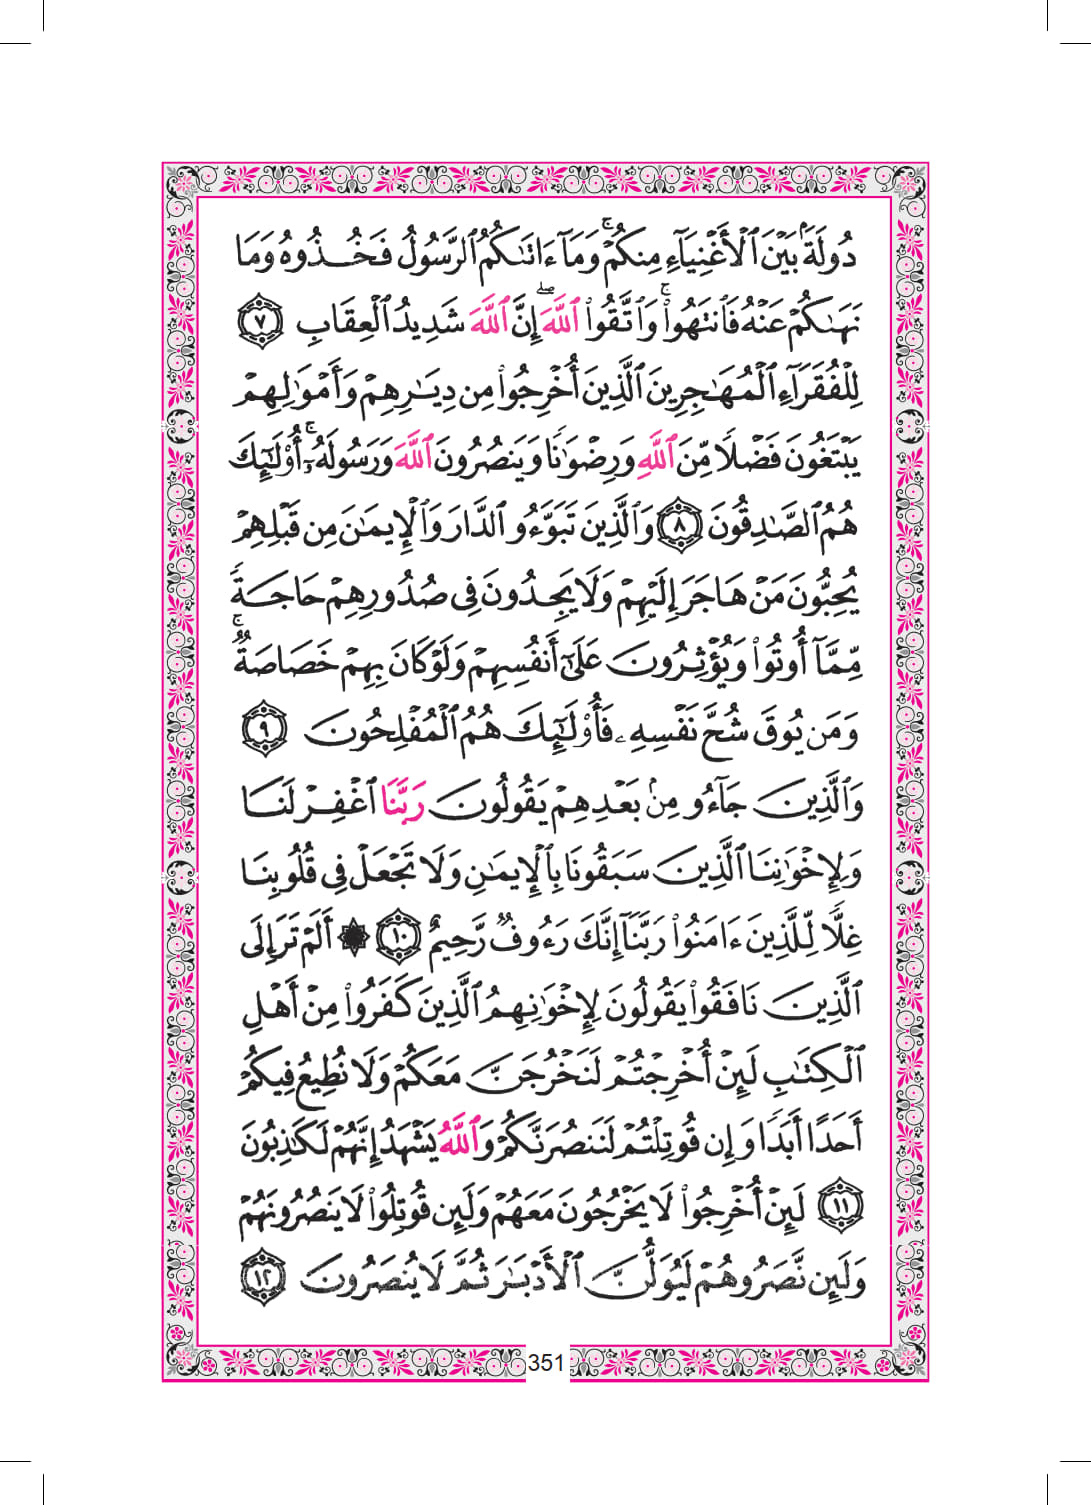 دُولَةَۢ بَيْنَ ٱلْأَغْنِيَآءِ مِنكُمْ ۚ وَمَآ ءَاتَىٰكُمُ ٱلرَّسُولُ فَخُذُوهُ وَمَا
نَهَىٰكُمْ عَنْهُ فَٱنتَهُوا۟ ۚ وَٱتَّقُوا۟ ٱللَّهَ ۖ إِنَّ ٱللَّهَ شَدِيدُ ٱلْعِقَابِ ٧
لِلْفُقَرَآءِ ٱلْمُهَـٰجِرِينَ ٱلَّذِينَ أُخْرِجُوا۟ مِن دِيَـٰرِهِمْ وَأَمْوَٰلِهِمْ
يَبْتَغُونَ فَضْلًا مِّنَ ٱللَّهِ وَرِضْوَٰنًا وَيَنصُرُونَ ٱللَّهَ وَرَسُولَهُۥٓ ۚ أُو۟لَـٰٓئِكَ
هُمُ ٱلصَّـٰدِقُونَ ٨ وَٱلَّذِينَ تَبَوَّءُو ٱلدَّارَ وَٱلْإِيمَـٰنَ مِن قَبْلِهِمْ
يُحِبُّونَ مَنْ هَاجَرَ إِلَيْهِمْ وَلَا يَجِدُونَ فِى صُدُورِهِمْ حَاجَةً
مِّمَّآ أُوتُوا۟ وَيُؤْثِرُونَ عَلَىٰٓ أَنفُسِهِمْ وَلَوْ كَانَ بِهِمْ خَصَاصَةٌ ۚ
وَمَن يُوقَ شُحَّ نَفْسِهِۦ فَأُو۟لَـٰٓئِكَ هُمُ ٱلْمُفْلِحُونَ ٩
وَٱلَّذِينَ جَآءُو مِنۢ بَعْدِهِمْ يَقُولُونَ رَبَّنَا ٱغْفِرْ لَنَا
وَلِإِخْوَٰنِنَا ٱلَّذِينَ سَبَقُونَا بِٱلْإِيمَـٰنِ وَلَا تَجْعَلْ فِى قُلُوبِنَا
غِلًّا لِّلَّذِينَ ءَامَنُوا۟ رَبَّنَآ إِنَّكَ رَءُوفٌ رَّحِيمٌ ١٠ ۞ أَلَمْ تَرَ إِلَى
ٱلَّذِينَ نَافَقُوا۟ يَقُولُونَ لِإِخْوَٰنِهِمُ ٱلَّذِينَ كَفَرُوا۟ مِنْ أَهْلِ
ٱلْكِتَـٰبِ لَئِنْ أُخْرِجْتُمْ لَنَخْرُجَنَّ مَعَكُمْ وَلَا نُطِيعُ فِيكُمْ
أَحَدًا أَبَدًا وَإِن قُوتِلْتُمْ لَنَنصُرَنَّكُمْ وَٱللَّهُ يَشْهَدُ إِنَّهُمْ لَكَـٰذِبُونَ
١١ لَئِنْ أُخْرِجُوا۟ لَا يَخْرُجُونَ مَعَهُمْ وَلَئِن قُوتِلُوا۟ لَا يَنصُرُونَهُمْ
وَلَئِن نَّصَرُوهُمْ لَيُوَلُّنَّ ٱلْأَدْبَـٰرَ ثُمَّ لَا يُنصَرُونَ ١٢
351